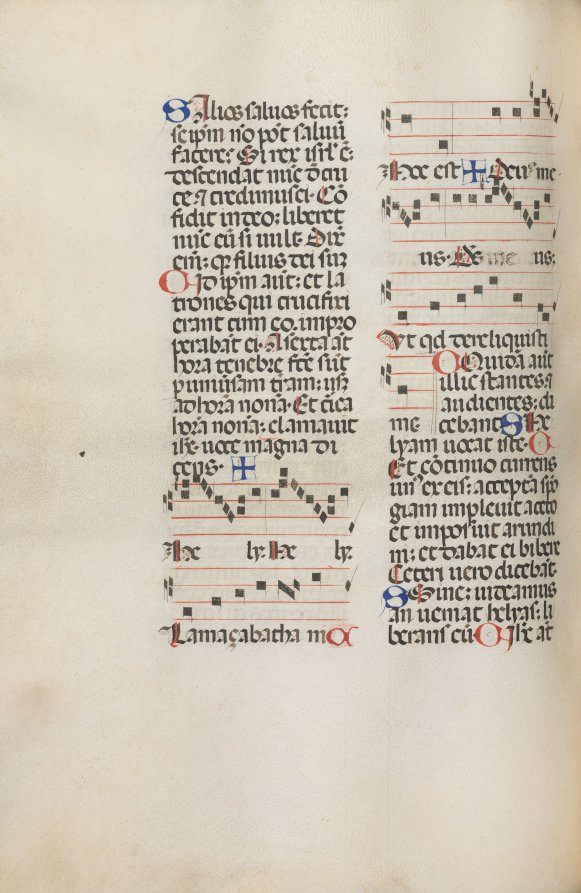 S Alios saluos fecit:
seip̄m nō pōt saluū
facere: Si rex isrl̄ ē:
descendat nūc d̄ cru
ce ⁊ credimus ei. Cō
fidit in deo: liberet
nūc eū si uult. Dix̄
em̄: qr filius dei suȝ
C Idip̄m aūt: et la
trones qui crucifixi
erant cum eo. impro
perabāt ei. A sexta āt
hora tenebre fc̄e sūt
p uniuīsam t̄ram: usq̄
ad horā nonā. Et circa
horā nonā: clamauit
ih̄e uoce magna di
cens. ✠
He ly. He ly.
Lamaçabatha ni C
Hoc est ✠ Deus me
us. Ds me us:
Vt qd dereliquisti
C Quidā aūt
illic stantes ⁊
audientes: di
me cebant S He
lyam uocat iste. C
Et cōtinuo currens
un̄ ex eis: acceptā spō
giam impleuit aceto
et imposuit arundi
ni: et dabat ei bibere
Ceteri uero dicebāt.
S Sine: uideamus
an ueniat helyas: li
berans eū C Ih̄e āt